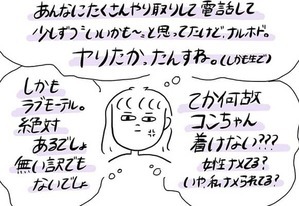 あんなにたくさんやり取りして電話して
少しずついいかも〜っと思ってたけど、ナルホド。
ヤリたかったんすね。(しかも生で)
しかも
ラブホテル。
絶対
あるでしょ
無い訳でも
ないでしょ
てか何故
コンちゃん
着けない???
女性ナメてる?
いや、私ナメられてる?